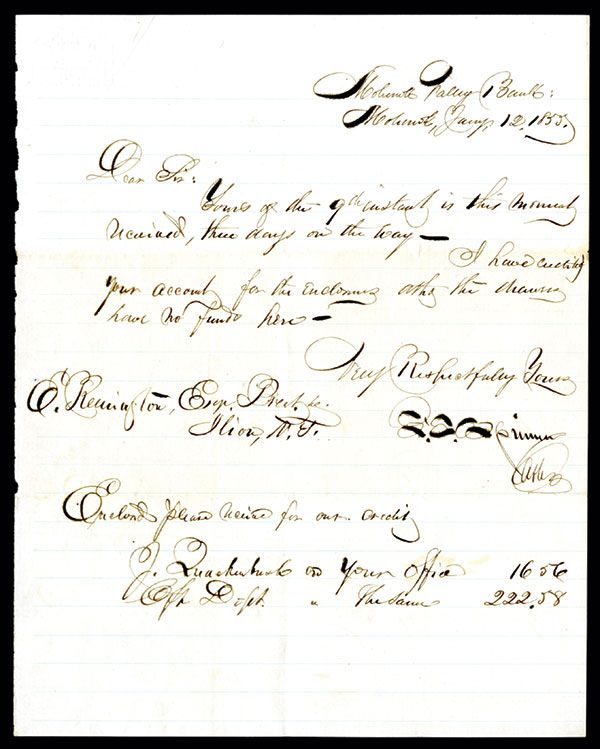 Mohawk Valley Bank:
Mohawk, Jany. 12. 1855.
Dear Sir:
Yours of the 9th instant is this moment
received, three days on the way —
I have credited
your account for the enclosures altho the drawers
have no funds here —
Very Respectfully Yours
E. Remington, Esqr. Prest. &c.
Ilion, N. Y.
F. E. Spinner
Cash
Enclosed please receive for our credit
J. Quackenbush on Your Office 16 56
Cft Dept. " The Same 222.58